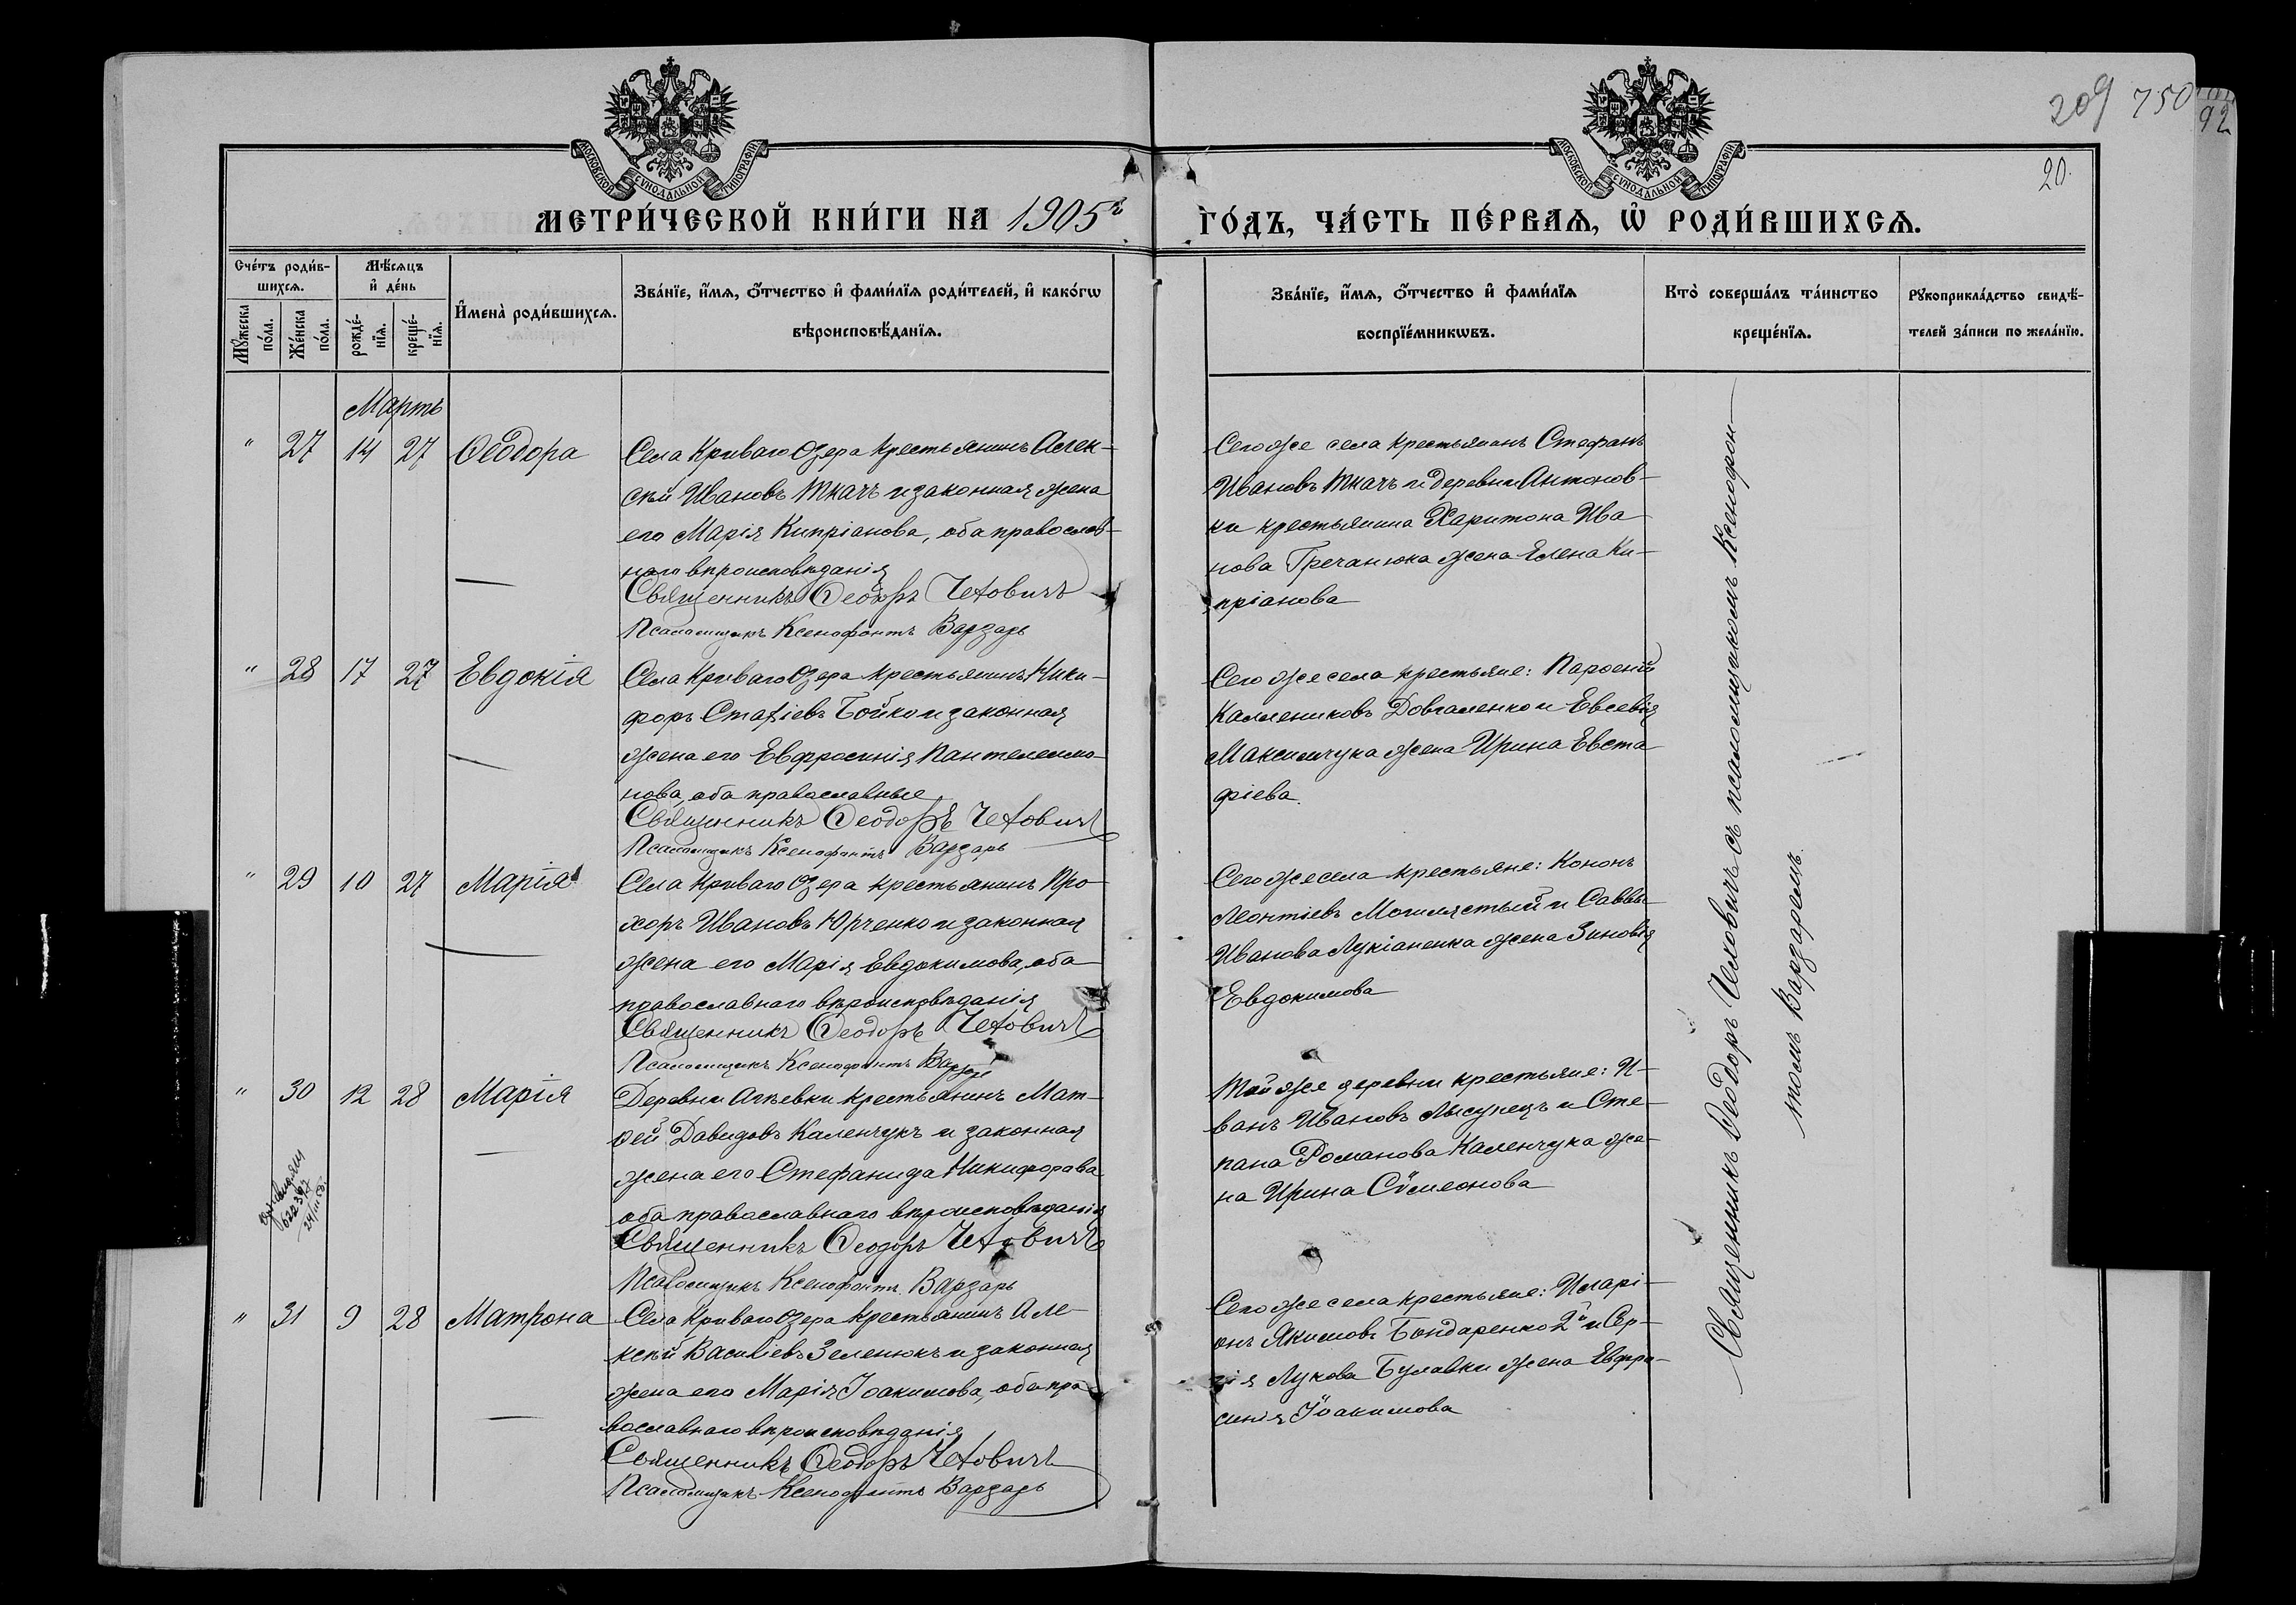 209 750 92
20.
МОСКОВСКОЙ СѴНОДАЛЬНОЙ ТИПОГРАФІИ
МОСКОВСКОЙ СѴНОДАЛЬНОЙ ТИПОГРАФІИ
МЕТРИ́ЧЕСКОЙ КНИ́ГИ НА 1905 г҃
ГО́ДЪ, ЧА́СТЬ ПЕ́РВАѦ, Ѡ҆ РОДИ́ВШИХСѦ.
Сче́тъ роди́в-
шихсѧ.
Мꙋ́жеска по́ла.
Же́нска по́ла.
Мѣ́сѧцъ
и҆ де́нь
рожде́-
нїѧ.
креще́-
нїѧ.
И҆мена̀ роди́вшихсѧ.
Зва́нїе, и҆́мѧ, ѻ҆́тчество и҆ фами́лїѧ роди́телей, и҆ како́гѡ
вѣроисповѣ́данїѧ.
Зва́нїе, и҆́мѧ, ѻ҆́тчество и҆ фами́лїѧ
воспрїе́мникѡвъ.
Кто̀ соверша́лъ та́инство
креще́нїѧ.
Рꙋкоприкла́дство свидѣ́-
телей за́писи по жела́нїю.
Мартъ
" 27 14 27 Ѳеодора
Села Криваго Озера крестьянинъ Алек-
сѣй Ивановъ Ткачъ и законная жена
его Марія Кипріанова, оба православ-
наго вѣроисповѣданія
Священникъ Ѳеодоръ Чехович
Псаломщикъ Ксенофонтъ Вардарь
Сего же села крестьянинъ Стефанъ
Ивановъ Ткачъ и деревни Антонов-
ки крестьянина Харитона Ива
нова Гречанюка жена Елена Ки-
пріанова
" 28 17 27 Евдокія
Села Криваго Озера крестьянинъ Ники-
форъ Стафіевъ Бойко и законная
жена его Евфросинія Пантелеимо-
нова, оба православные
Священникъ Ѳеодоръ Чехович
Псаломщикъ Ксенофонтъ Вардарь
Сего же села крестьяне: Парѳеній
Каллениковъ Довгаленко и Евсевія
Максимчука жена Ирина Евста
фіева.
" 29 10 27 Марія
Села Криваго Озера крестьянинъ Про
хоръ Ивановъ Юрченко и законная
жена его Марія Евдокимова, оба
православнаго вѣроисповѣданія
Священникъ Ѳеодоръ Чехович
Псаломщикъ Ксенофонтъ Вардарь
Сего же села крестьяне: Кононъ
Леонтіевъ Могилястый и Саввы
Иванова Лукіаненка жена Зиновія
Евдокимова
" 30 12 28 Марія
Деревни Агѣевки крестьянинъ Мат-
ѳей Давидовъ Каленчукъ и законная
жена его Стефанида Никифорова
оба православнаго вѣроисповѣданія
Священникъ Ѳеодоръ Чехович
Псаломщикъ Ксенофонтъ Вардарь
Той же деревни крестьяне: И-
ванъ Ивановъ Лысунецъ и Сте-
пана Романова Каленчука же-
на Ирина Сѵмеонова
" 31 9 28 Матрона
Села Криваго Озера крестьянинъ Але-
ксѣй Василіевъ Зеленюкъ и законная
жена его Марія Іоакимова, оба пра
вославнаго вѣроисповѣданія
Священникъ Ѳеодоръ Чехович
Псаломщикъ Ксенофонтъ Вардарь
Сего же села крестьяне: Иларі-
онъ Якимовъ Бондаренко 2й и Сер-
гія Лукова Булавки жена Евфро-
синія Іоакимова
Священникъ Ѳеодоръ Чеховичъ съ псаломщикомъ Ксенофон-
томъ Вардаремъ.